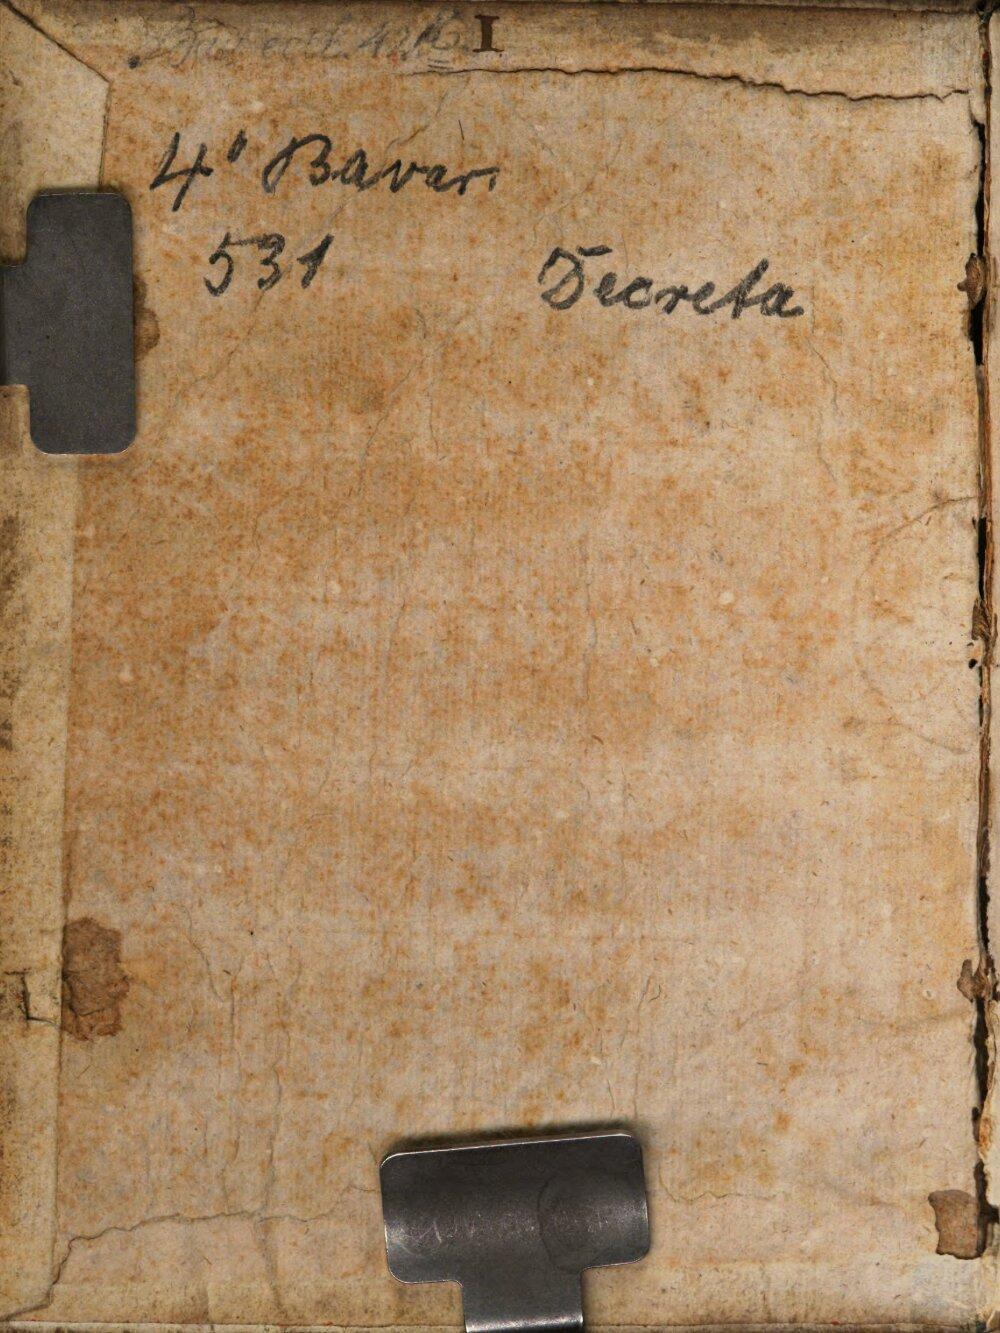 I
4° Bavar.
531 Decreta